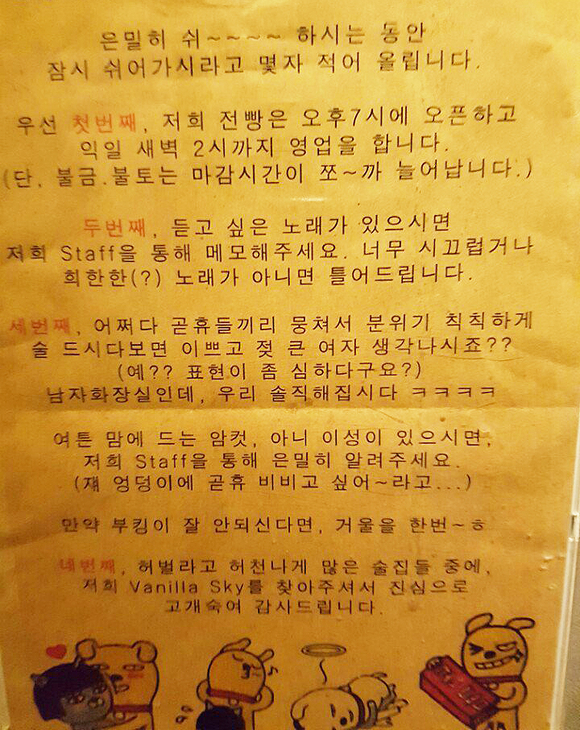 은밀히 쉬~~~~ 하시는 동안
잠시 쉬어가시라고 몇자 적어 올립니다.
우선 첫번째, 저희 전빵은 오후7시에 오픈하고
익일 새벽 2시까지 영업을 합니다.
(단, 불금.불토는 마감시간이 쪼~까 늘어납니다.)
두번째, 듣고 싶은 노래가 있으시면
저희 Staff을 통해 메모해주세요. 너무 시끄럽거나
희한한(?) 노래가 아니면 틀어드립니다.
세번째, 어쩌다 곧휴들끼리 뭉쳐서 분위기 칙칙하게
술 드시다보면 이쁘고 젖 큰 여자 생각나시죠??
(예?? 표현이 좀 심하다구요?)
남자화장실인데, 우리 솔직해집시다 ㅋㅋㅋㅋ
여튼 맘에 드는 암컷, 아니 이성이 있으시면,
저희 Staff을 통해 은밀히 알려주세요.
(쟤 엉덩이에 곧휴 비비고 싶어~라고...)
만약 부킹이 잘 안되신다면, 거울을 한번~ㅎ
네번째, 허벌라고 허천나게 많은 술집들 중에,
저희 Vanilla Sky를 찾아주셔서 진심으로
고개숙여 감사드립니다.